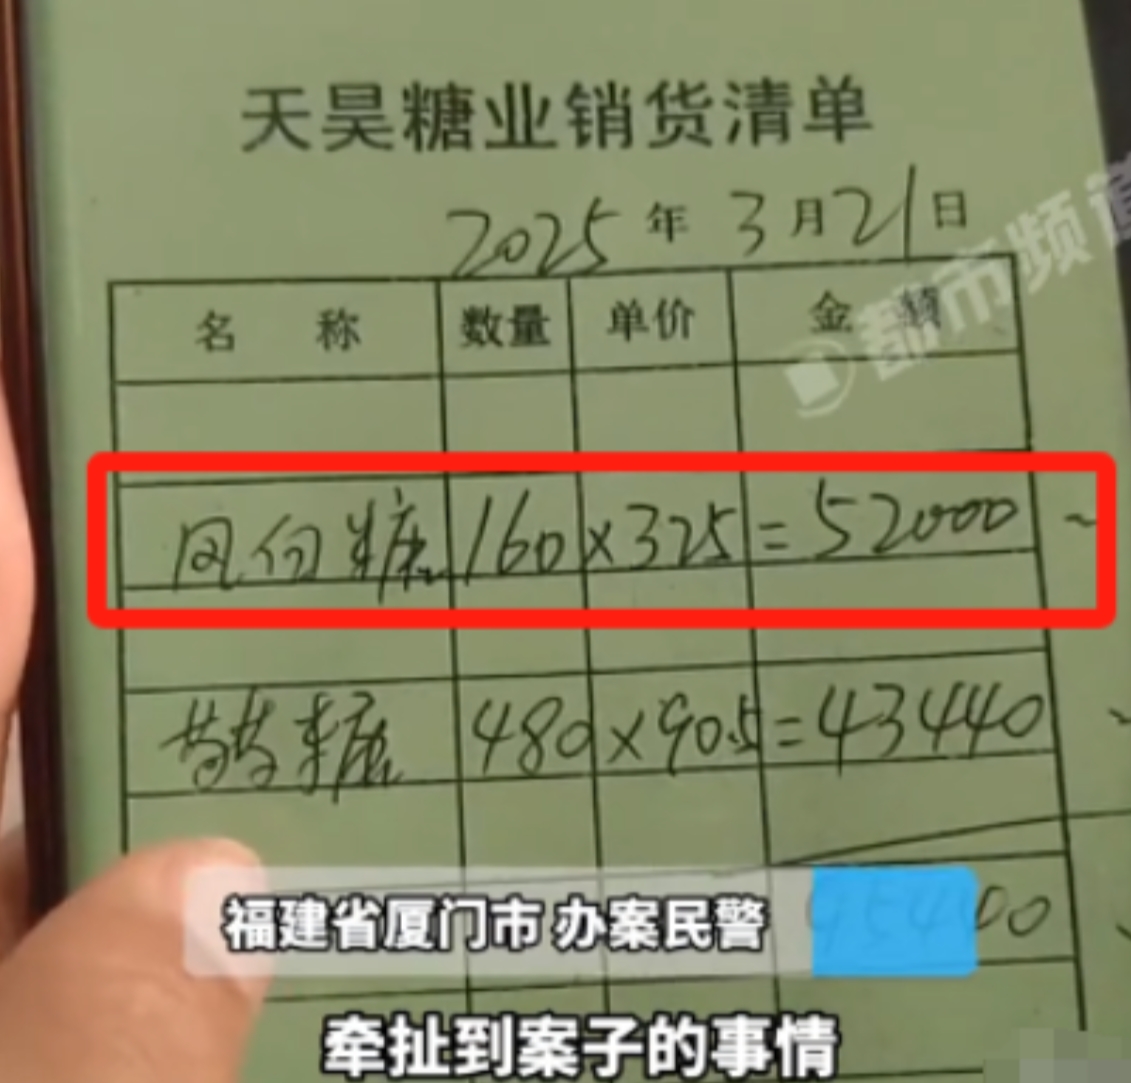 天昊糖业销货清单
2025年3月21日
都市频道
名称 数量 单价 金额
风向糖 160×325=52000
480×90.5=43440
福建省厦门市 办案民警 95440
牵扯到案子的事情